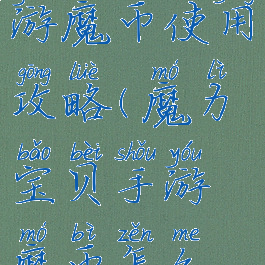 游魔币使用
gōng lüè mó lì
攻略(魔力
bǎo bèi shǒu yóu
宝贝手游
mó bì zěn me
魔币怎么